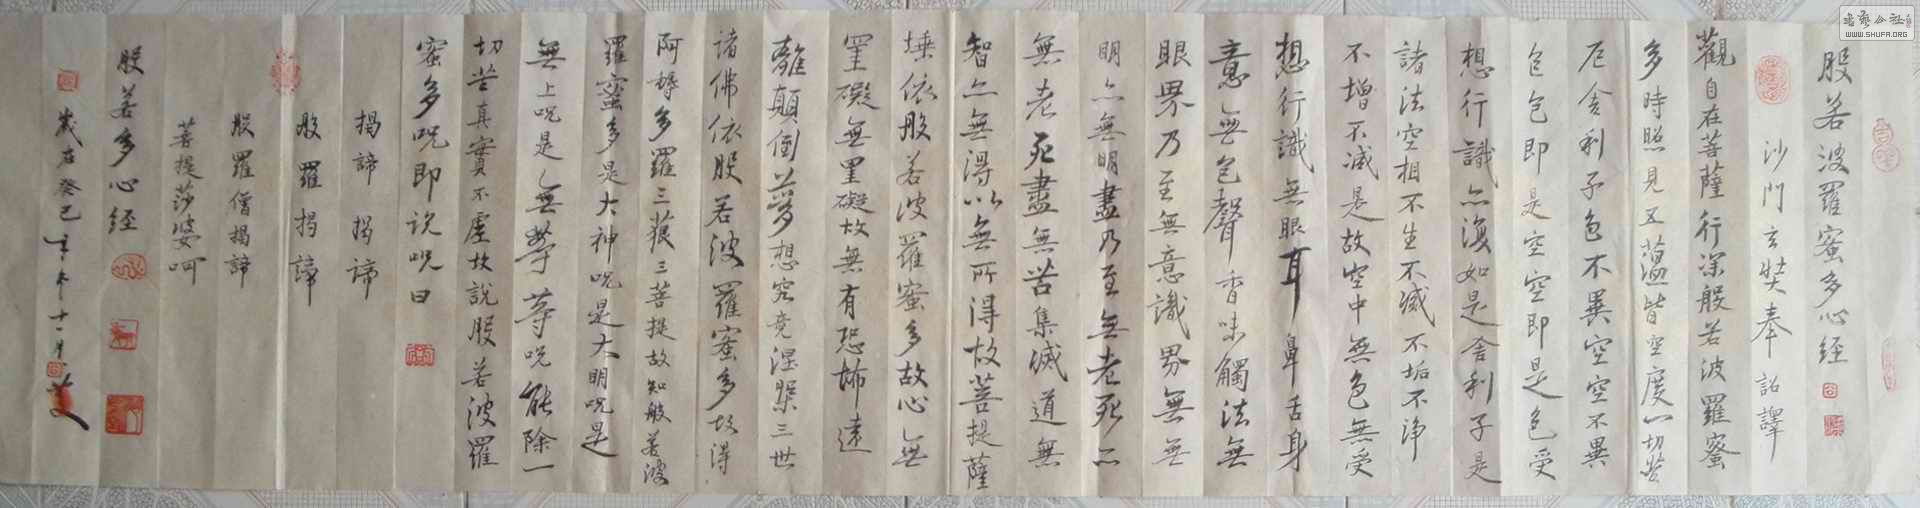 般若波羅蜜多心経
沙門玄奘奉詔譯
觀自在菩薩行深般若波羅蜜
多時照見五蕴皆空度一切苦
厄舍利子色不異空空不異
色色即是空空即是色受
想行識亦復如是舍利子是
諸法空相不生不滅不垢不淨
不增不减是故空中無色無受
想行識無眼耳鼻舌身
意無色聲香味觸法無
眼界乃至無意識界無無
明亦無明盡乃至無老死亦
無老死盡無苦集滅道無
智亦無得以無所得故菩提薩
埵依般若波羅蜜多故心無
罣礙無罣礙故無有恐怖遠
離顛倒夢想究竟涅槃三世
諸佛依般若波羅蜜多故得
阿耨多羅三藐三菩提故知般若波
羅蜜多是大神呪是大明呪是
無上呪是無等等呪能除一
切苦真實不虛故說般若波羅
蜜多呪即説呪曰
揭諦揭諦
般羅揭諦
般羅僧揭諦
菩提莎婆呵
般若多心経
歲在癸巳年十一月
書藝公社
WWW.SHUFA.ORG